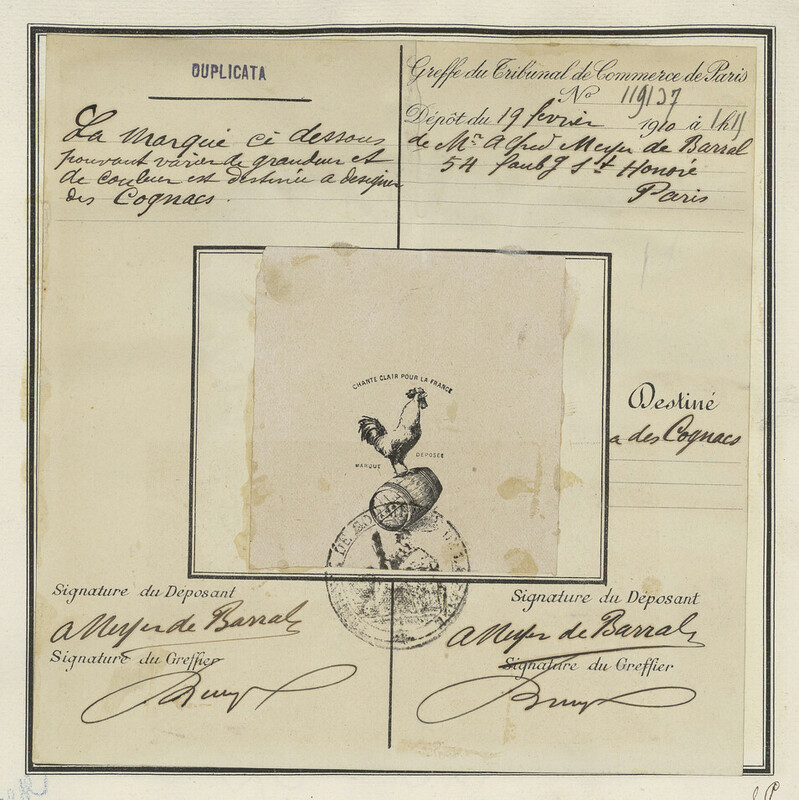 DUPLICATA
La marque ci dessous
pouvant varier de grandeur et
de couleur est destinée a designer
des Cognacs.
Greffe du Tribunal de Commerce de Paris
No 119137
Dépôt du 19 février 1910 à
de Mr Alfred Meyer de Barral
54 faubg St Honoré
Paris
CHANTE CLAIR POUR LA FRANCE
MARQUE DEPOSÉE
Destiné
a des Cognacs
Signature du Déposant
A Meyer de Barral
Signature du Greffier
Signature du Déposant
A Meyer de Barral
Signature du Greffier